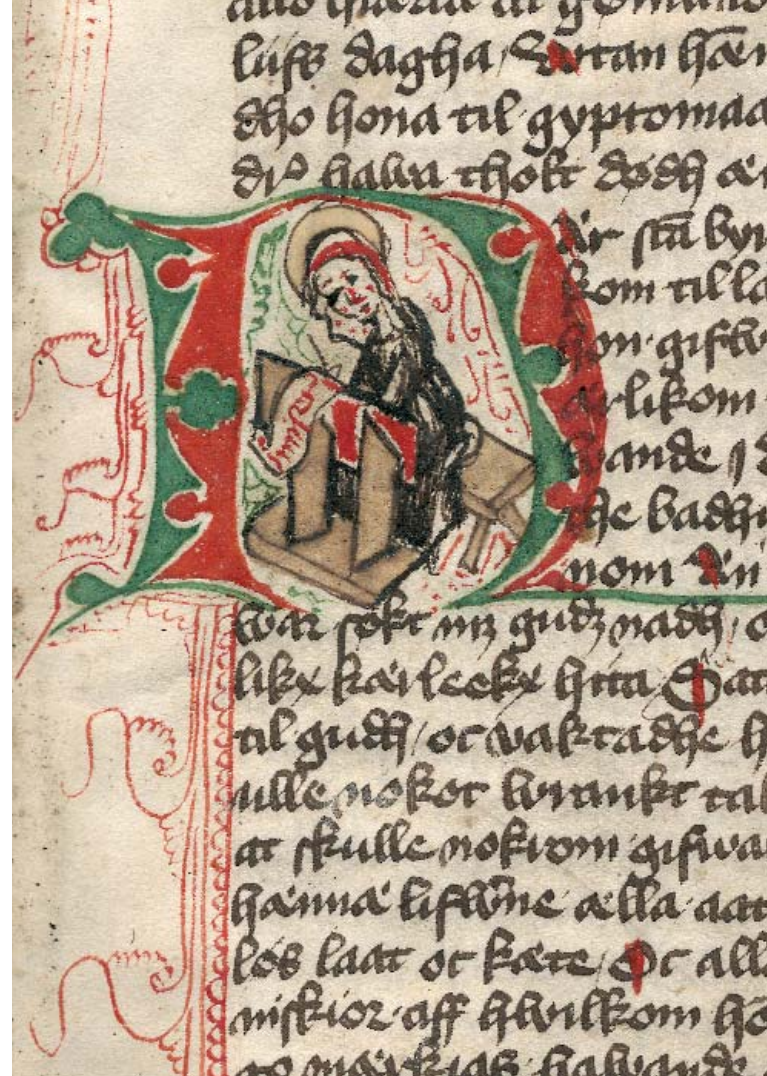 liifs dagha, Wtan hæn
dho hona til gyptomaa
dr hawa thokt dødh æ
Här sta byr
kom til la
hon gifw
ærlikom
wande j d
the badh
nom Än
war søkt mz gudz nadh, o
like kærleeke hita Sat
til gudh, oc vaktadhe h
uille nokot wrankt tal
at skulle nokrom gifwa
hænna lifwerne ælla aat
løs laat oc kæte, Oc all
niskior aff hwilkom ho